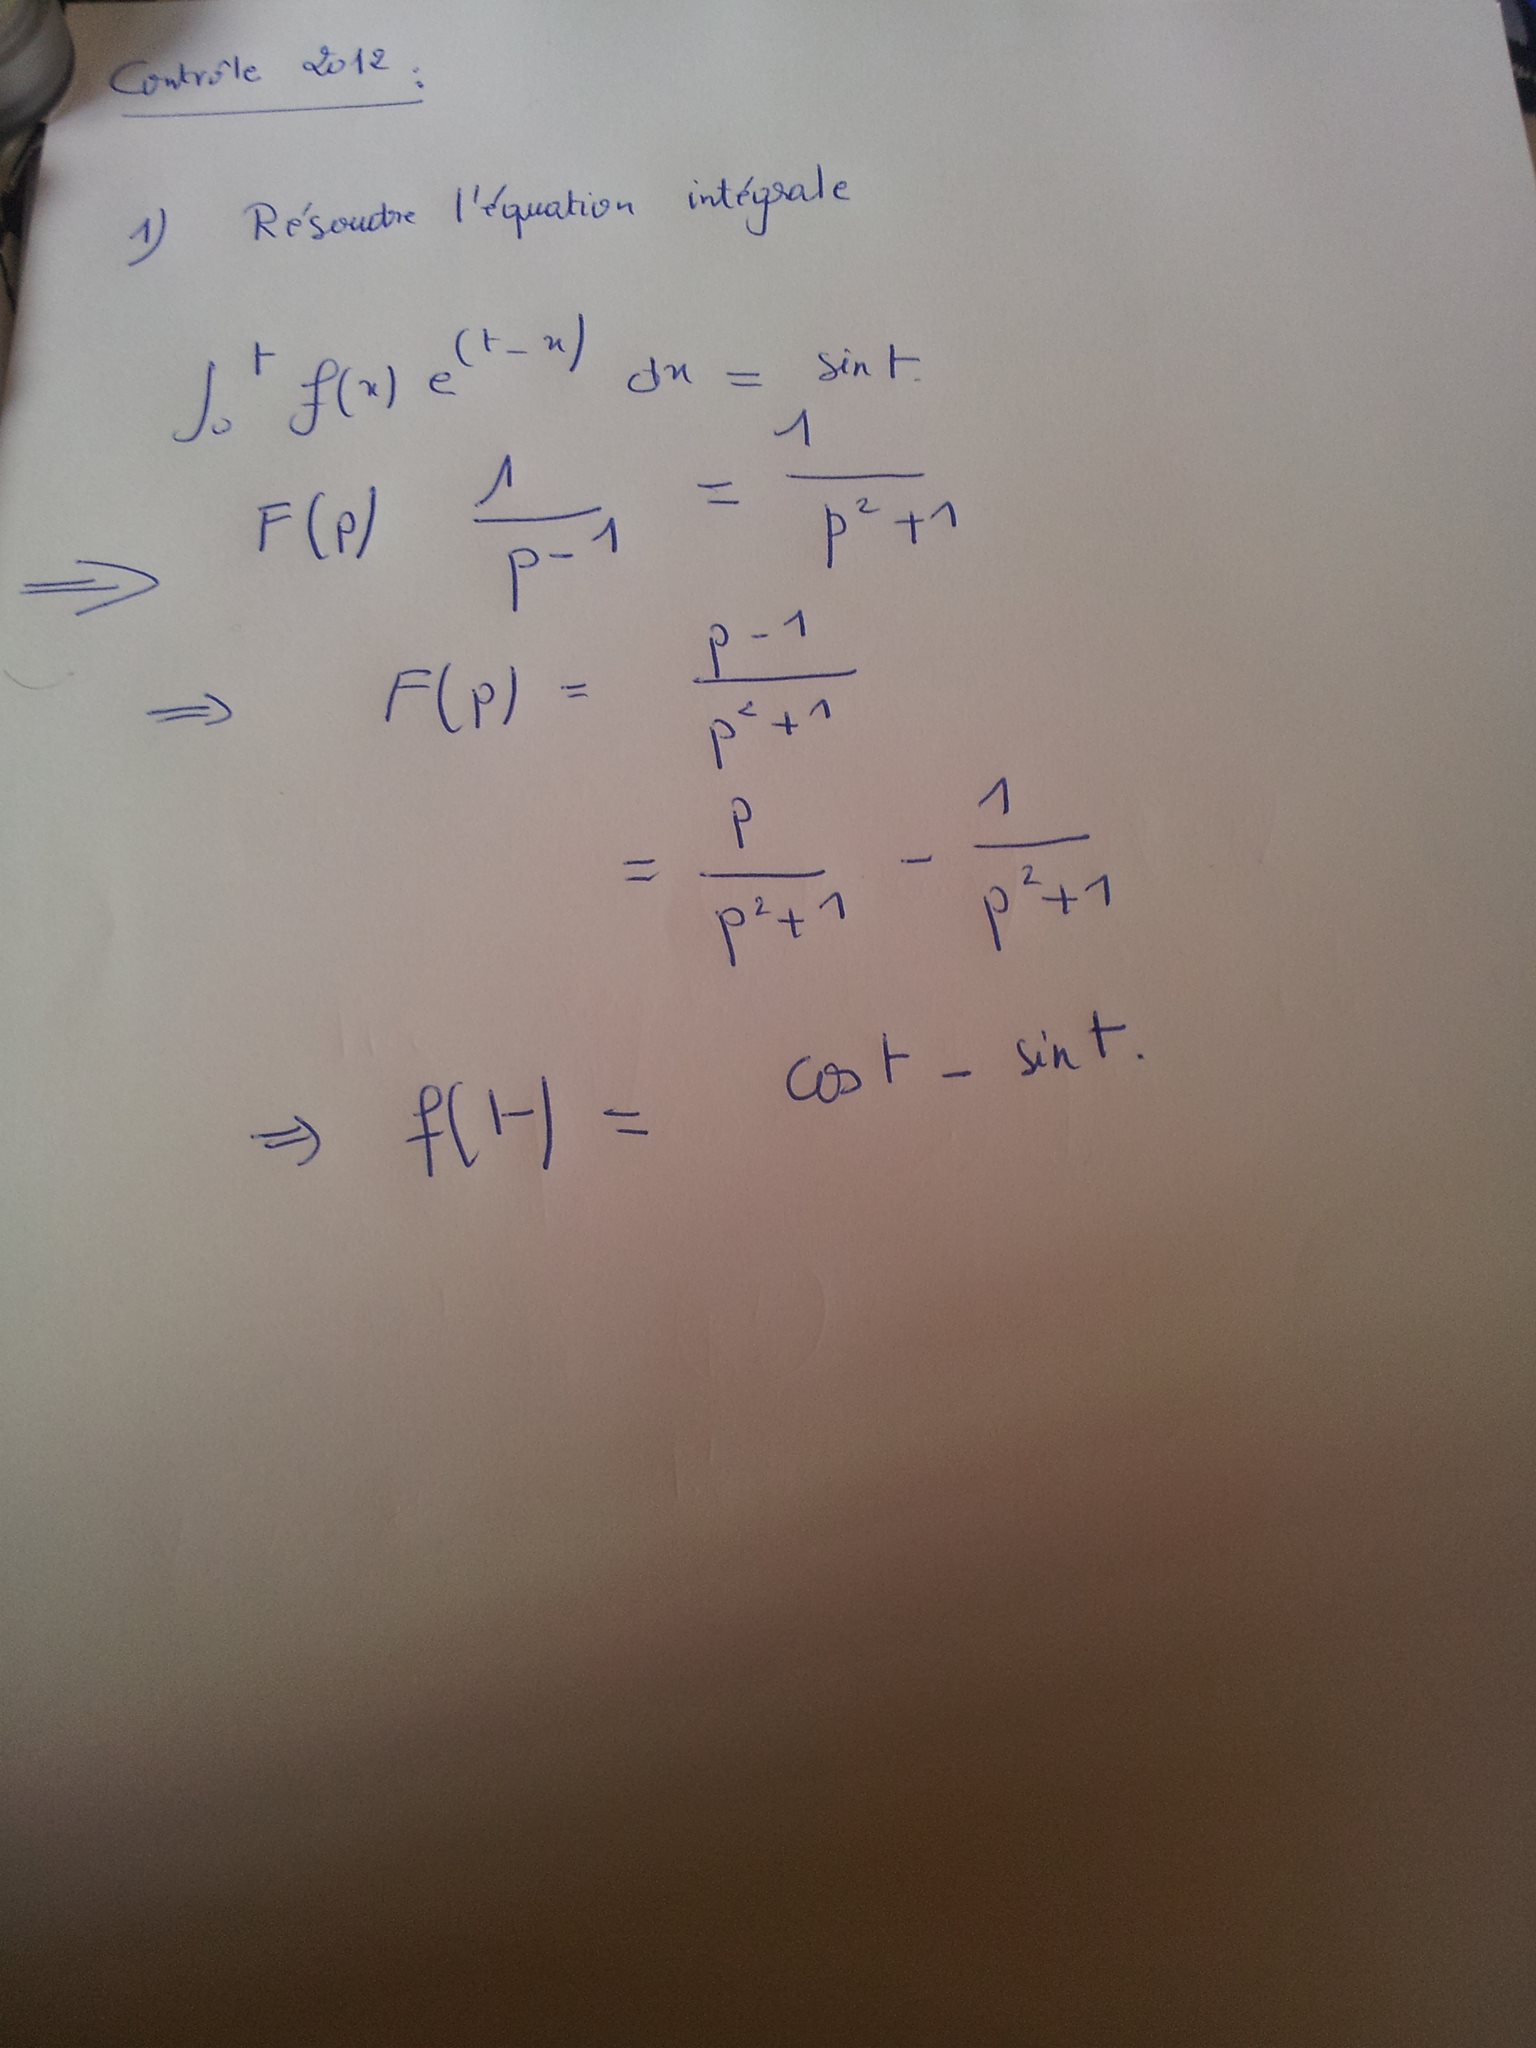 Contrôle 2012 :
1) Résoudre l'équation intégrale
∫₀ᵗ f(x) e^(t-x) dx = sin t.
⇒ F(p) 1/(p-1) = 1/(p²+1)
⇒ F(p) = (p-1)/(p²+1)
= p/(p²+1) - 1/(p²+1)
⇒ f(t) = cos t - sin t.